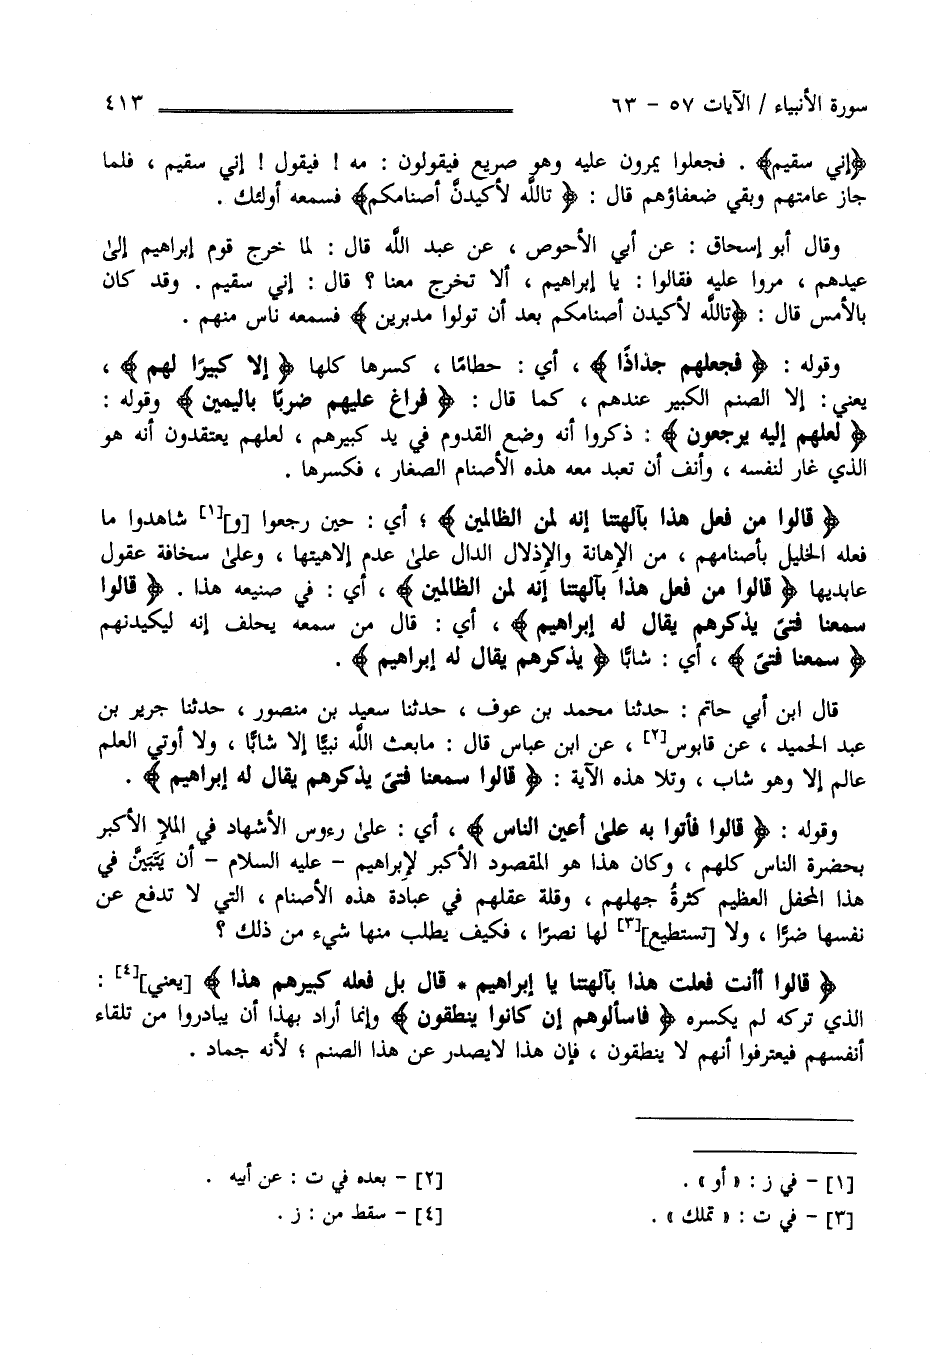 سورة الأنبياء / الآيات ٥٧ - ٦٣ ٤١٣
﴿إني سقيم﴾ . فجعلوا يمرون عليه وهو صريع فيقولون : مه ! فيقول ! إني سقيم ، فلما
جاز عامتهم وبقي ضعفاؤهم قال : ﴿ تالله لأكيدنَّ أصنامكم﴾ فسمعه أولئك .
وقال أبو إسحاق : عن أبي الأحوص ، عن عبد الله قال : لما خرج قوم إبراهيم إلىٰ
عيدهم ، مروا عليه فقالوا : يا إبراهيم ، ألا تخرج معنا ؟ قال : إني سقيم . وقد كان
بالأمس قال : ﴿تالله لأكيدن أصنامكم بعد أن تولوا مدبرين ﴾ فسمعه ناس منهم .
وقوله : ﴿ فجعلهم جذاذًا ﴾ ، أي : حطامًا ، كسرها كلها ﴿ إلا كبيرًا لهم ﴾ ،
يعني : إلا الصنم الكبير عندهم ، كما قال : ﴿ فراغ عليهم ضربًا باليمين ﴾ وقوله :
﴿ لعلهم إليه يرجعون ﴾ : ذكروا أنه وضع القدوم في يد كبيرهم ، لعلهم يعتقدون أنه هو
الذي غار لنفسه ، وأنف أن تعبد معه هذه الأصنام الصغار ، فكسرها .
﴿ قالوا من فعل هذا بآلهتنا إنه لمن الظالمين ﴾ ؛ أي : حين رجعوا [و][١] شاهدوا ما
فعله الخليل بأصنامهم ، من الإهانة والإذلال الدال علىٰ عدم إلاهيتها ، وعلىٰ سخافة عقول
عابديها ﴿ قالوا من فعل هذا بآلهتنا إنه لمن الظالمين ﴾ ، أي : في صنيعه هذا . ﴿ قالوا
سمعنا فتىً يذكرهم يقال له إبراهيم ﴾ ، أي : قال من سمعه يحلف إنه ليكيدنهم
﴿ سمعنا فتىً ﴾ ، أي : شابًّا ﴿ يذكرهم يقال له إبراهيم ﴾ .
قال ابن أبي حاتم : حدثنا محمد بن عوف ، حدثنا سعيد بن منصور ، حدثنا جرير بن
عبد الحميد ، عن قابوس[٢] ، عن ابن عباس قال : مابعث الله نبيًّا إلا شابًّا ، ولا أوتي العلم
عالم إلا وهو شاب ، وتلا هذه الآية : ﴿ قالوا سمعنا فتىً يذكرهم يقال له إبراهيم ﴾ .
وقوله : ﴿ قالوا فأتوا به علىٰ أعين الناس ﴾ ، أي : علىٰ رءوس الأشهاد في الملإ الأكبر
بحضرة الناس كلهم ، وكان هذا هو المقصود الأكبر لإبراهيم - عليه السلام - أن يَتَبَيَّنَ في
هذا المحفل العظيم كثرةُ جهلهم ، وقلة عقلهم في عبادة هذه الأصنام ، التي لا تدفع عن
نفسها ضرًّا ، ولا [تستطيع][٣] لها نصرًا ، فكيف يطلب منها شيء من ذلك ؟
﴿ قالوا أأنت فعلت هذا بآلهتنا يا إبراهيم * قال بل فعله كبيرهم هذا ﴾ [يعني][٤] :
الذي تركه لم يكسره ﴿ فاسألوهم إن كانوا ينطقون ﴾ وإنما أراد بهذا أن يبادروا من تلقاء
أنفسهم فيعترفوا أنهم لا ينطقون ، فإن هذا لايصدر عن هذا الصنم ؛ لأنه جماد .
[١] - في ز : « أو » . [٢] - بعده في ت : عن أبيه .
[٣] - في ت : « تملك » . [٤] - سقط من : ز .